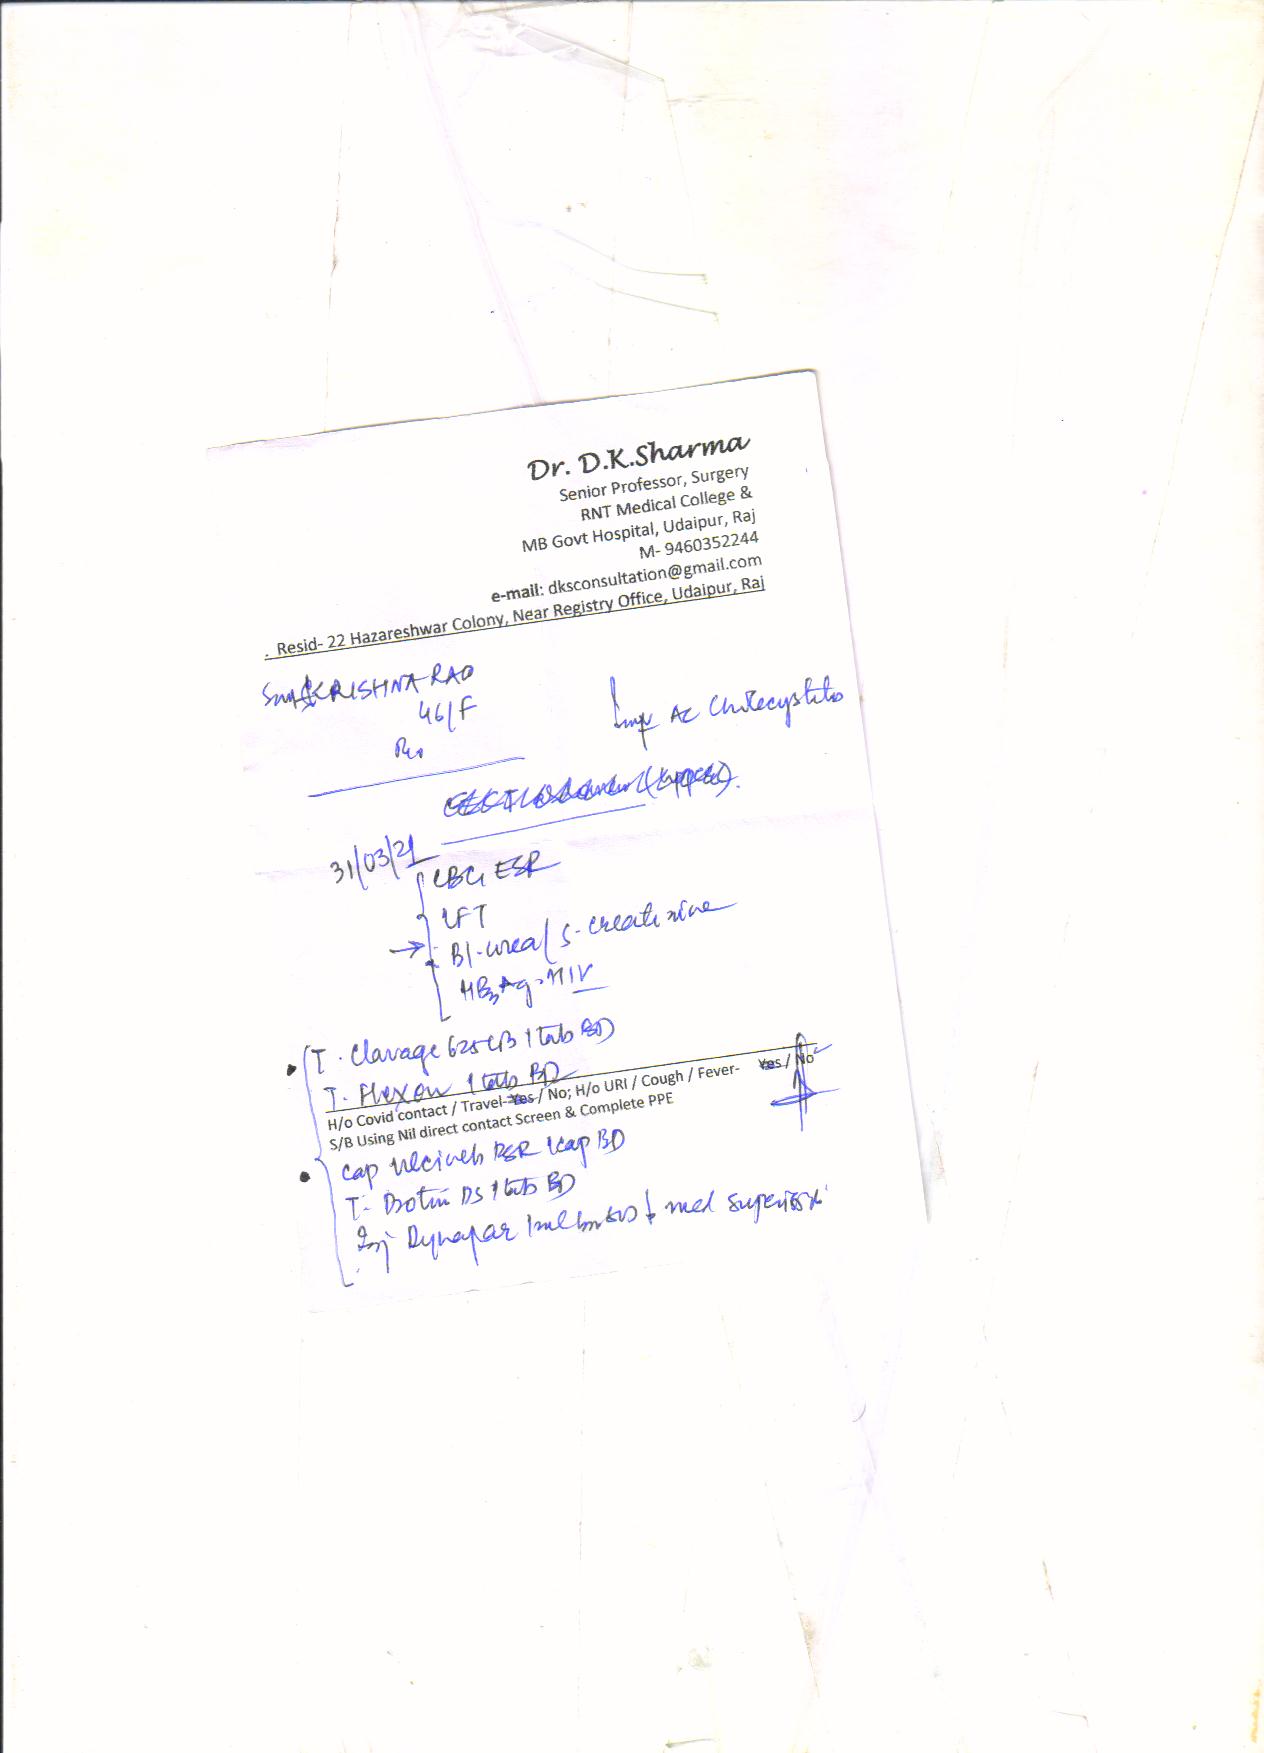 Dr. D.K.Sharma
Senior Professor, Surgery
RNT Medical College &
MB Govt Hospital, Udaipur, Raj
M- 9460352244
e-mail: dksconsultation@gmail.com
. Resid- 22 Hazareshwar Colony, Near Registry Office, Udaipur, Raj
KRISHNA RAO
46/F
Imp Ac Cholecystitis
31/03/21
CBC, ESR
LFT
Bl-urea/ S-creatinine
HBsAg, HIV
T. Clavage 625 1 tab BD
T. Flexon 1 tab BD
H/o Covid contact / Travel- Yes / No; H/o URI / Cough / Fever- Yes / No
S/B Using Nil direct contact Screen & Complete PPE
cap DSR 1 cap BD
T. DS 1 tab BD
Inj Dynapar 1ml med